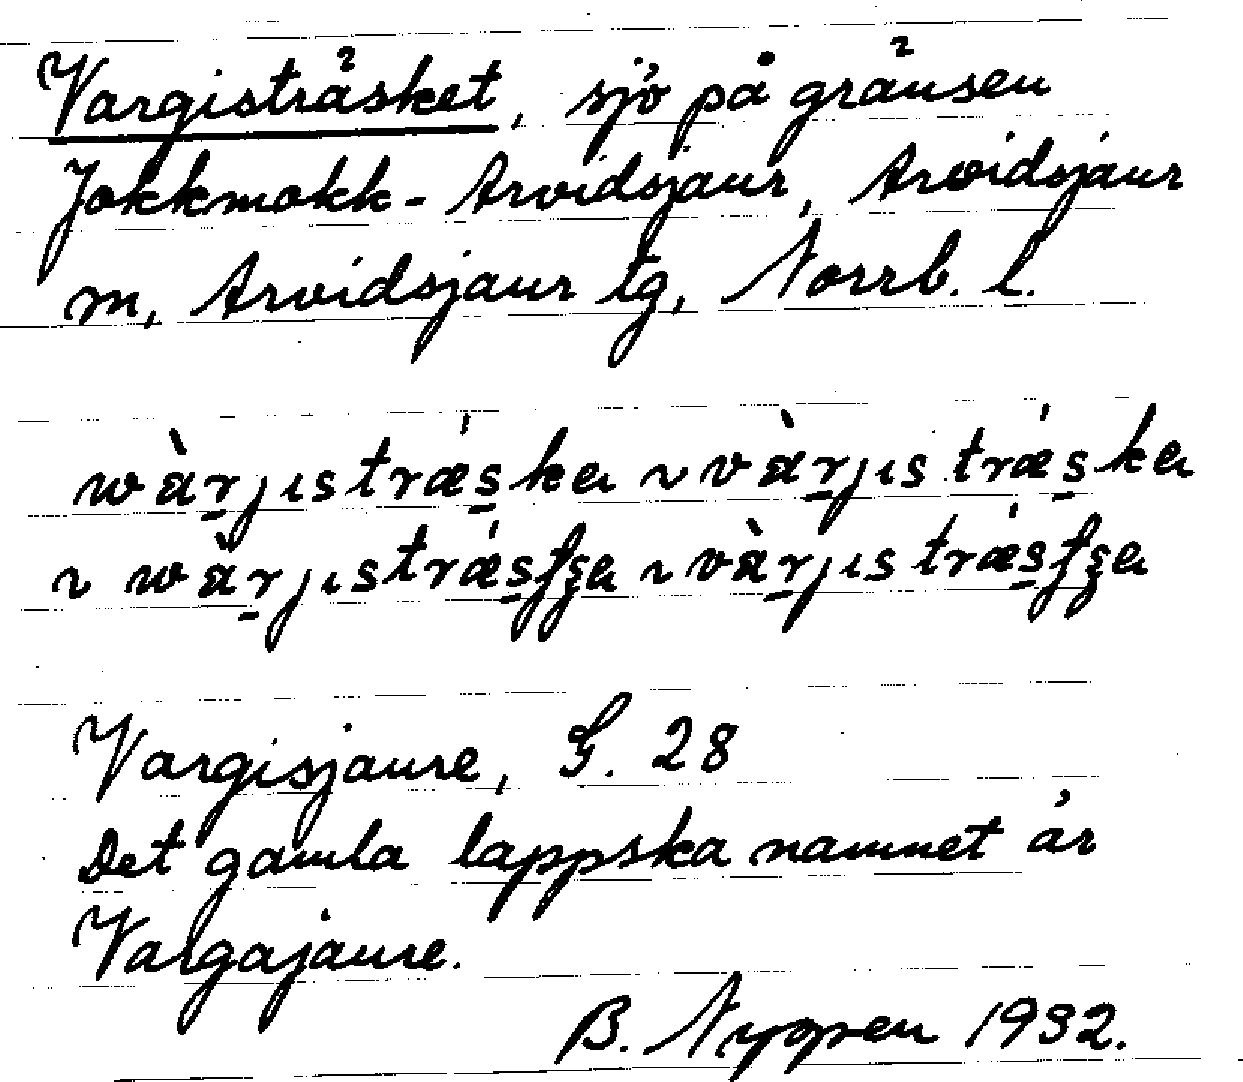 Vargisträsket, sjö på gränsen
Jokkmokk - Arvidsjaur, Arvidsjaur
m, Arvidsjaur tg, Norrb. l.
wàr̲jıstrǽs̲ka ~ vàr̲jıstrǽs̲ka
~ wàr̲jıstrǽs̲ʃʒa ~ vàr̲jıstrǽs̲ʃʒa
Vargisjaure, G. 28
Det gamla lappska namnet är
Vargajaure.
B. Nyopen 1932.